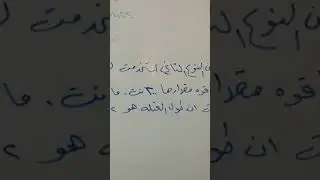 ن النوع الثاني استخدمت ل
قوه مقدارها ٢٠٠ نت. ما
ان طول العتله هو ٢